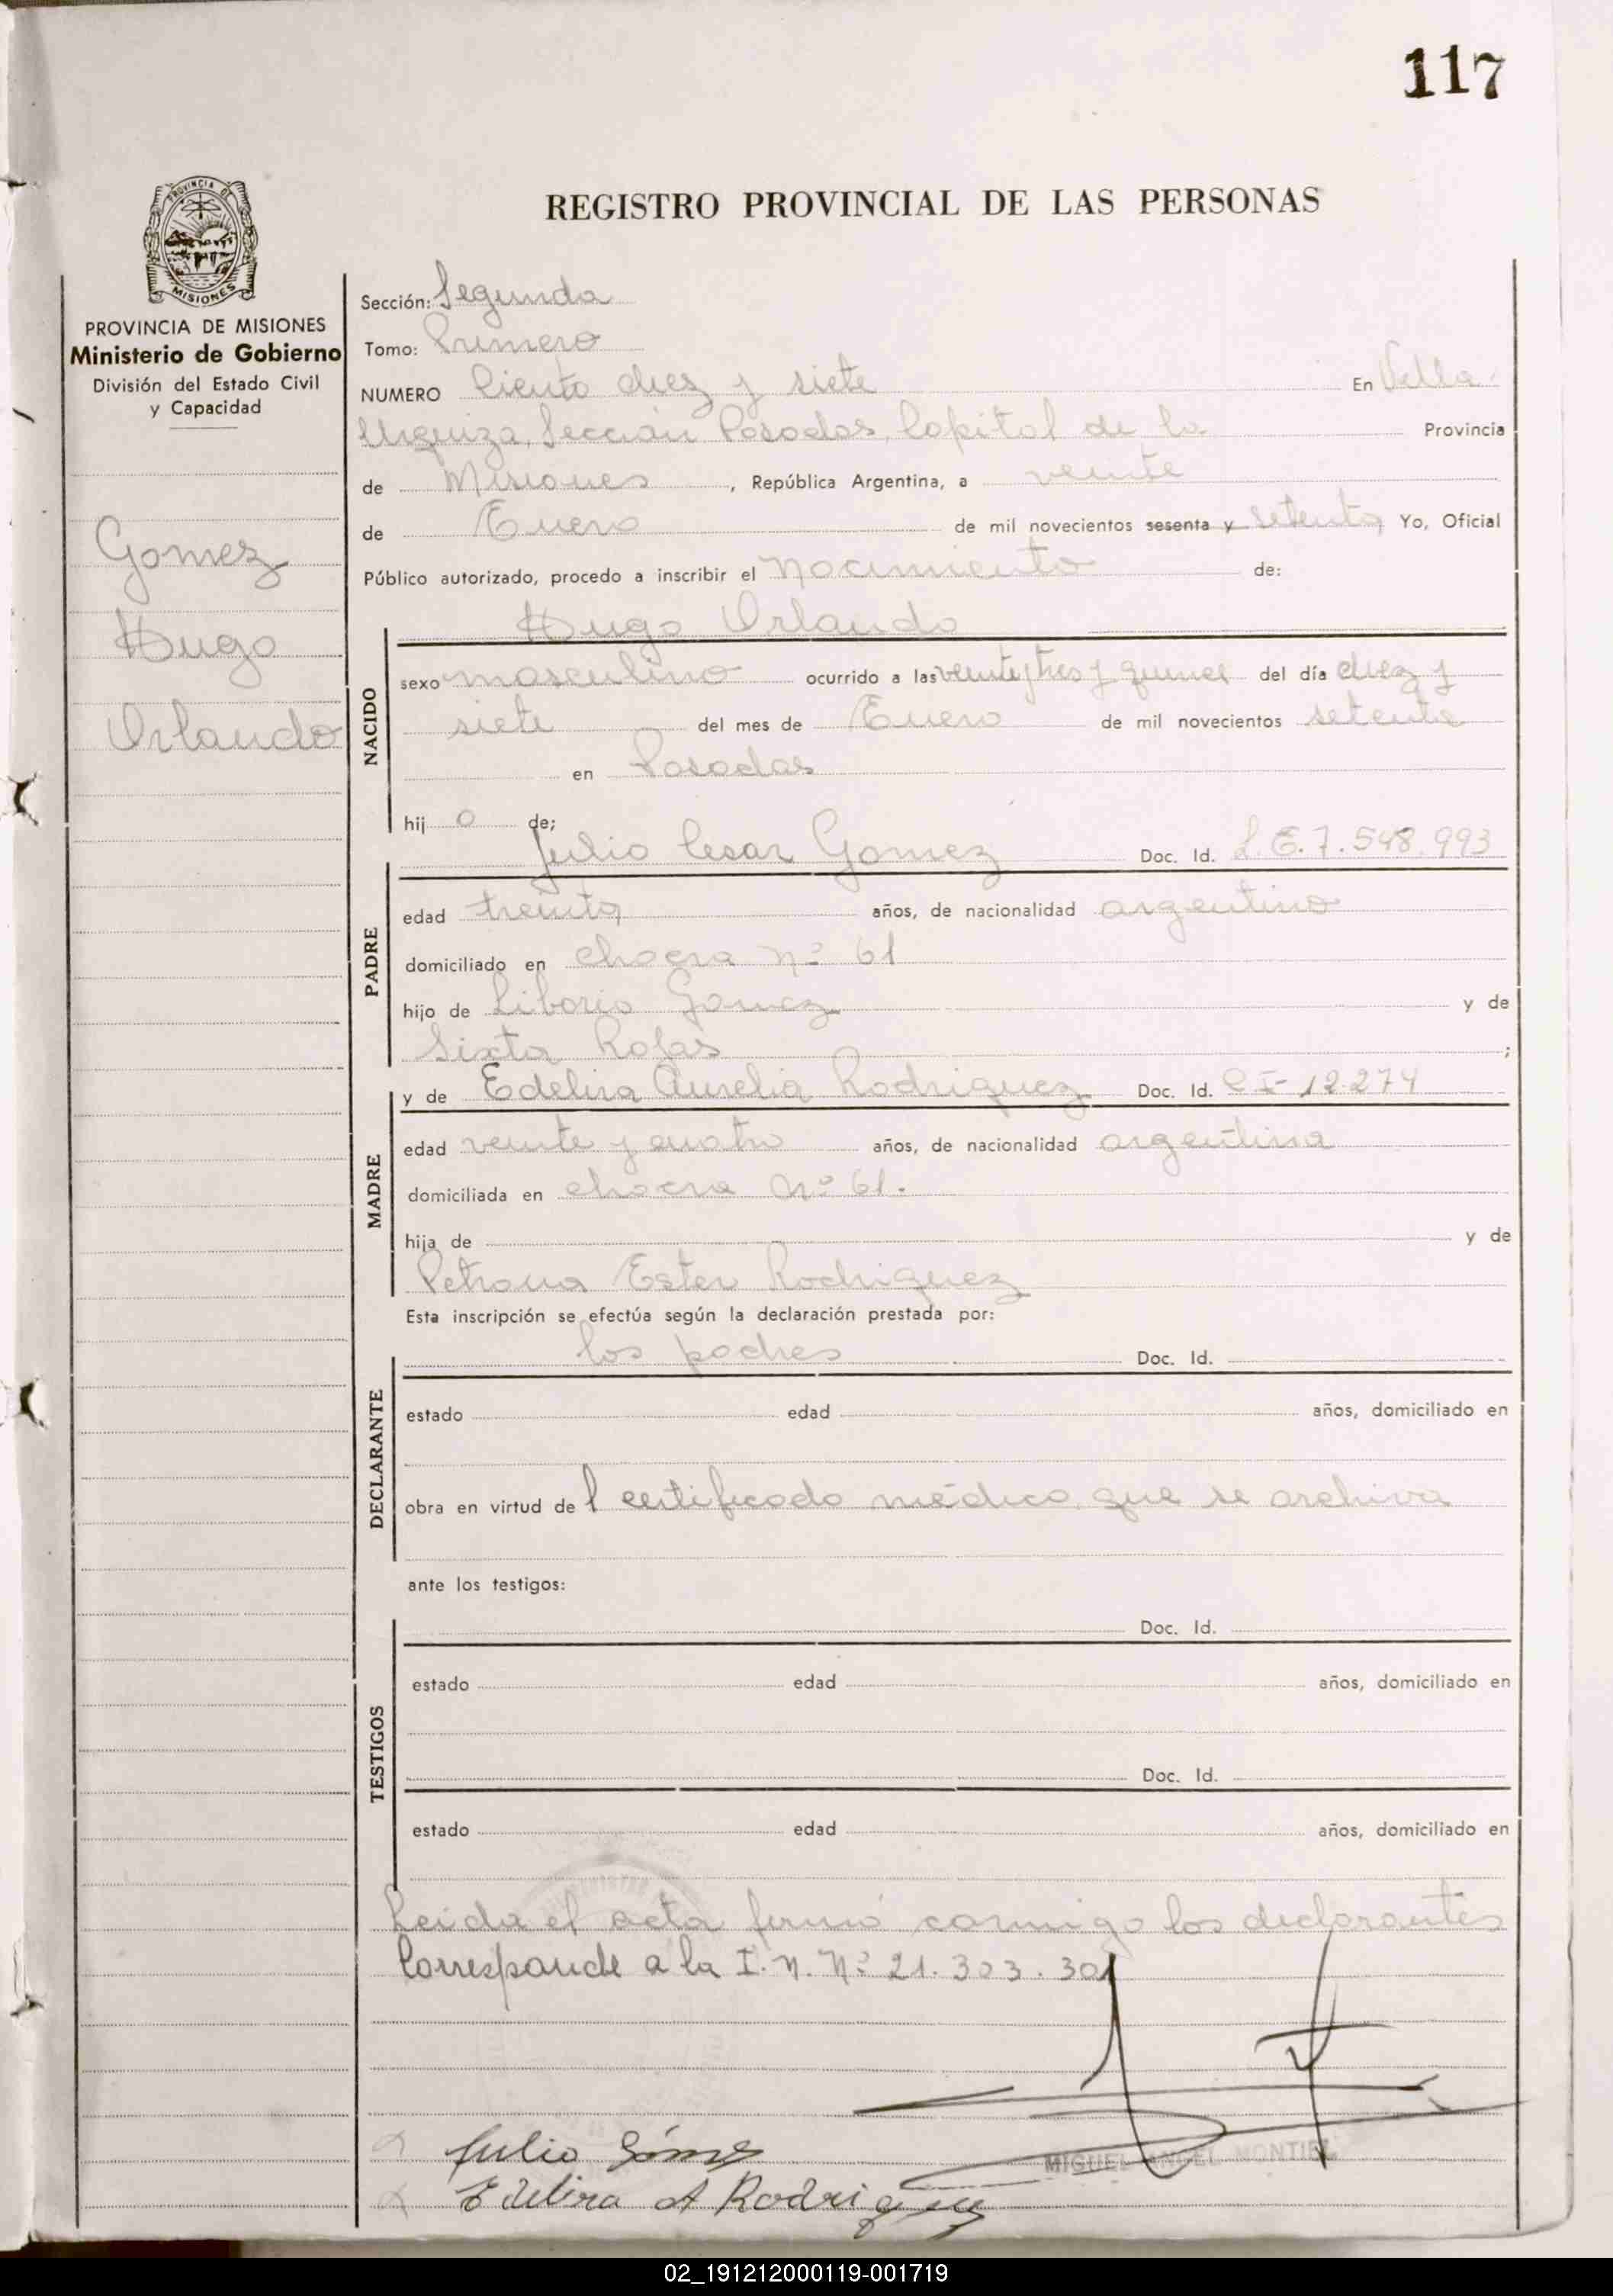 117
PROVINCIA DE
MISIONES
REGISTRO PROVINCIAL DE LAS PERSONAS
PROVINCIA DE MISIONES
Ministerio de Gobierno
División del Estado Civil
y Capacidad
Gomez
Hugo
Orlando
Sección: Segunda
Tomo: Primero
NUMERO Ciento diez y siete En Villa
Urquiza, Sección Posadas, Capital de la Provincia
de Misiones, República Argentina, a veinte
de Enero de mil novecientos sesenta y setenta Yo, Oficial
Público autorizado, procedo a inscribir el Nacimiento de:
Hugo Orlando
NACIDO
sexo masculino ocurrido a las veinte y tres y quince del día diez y
siete del mes de Enero de mil novecientos setenta
en Posadas
hij o de;
Julio Cesar Gomez Doc. Id. L.E. 7.548.993
PADRE
edad treinta años, de nacionalidad argentino
domiciliado en chacra nº 61
hijo de Liborio Gomez y de
Sixta Rojas ;
y de Edelira Aurelia Rodriguez Doc. Id. C I- 12.274
MADRE
edad veinte y cuatro años, de nacionalidad argentina
domiciliada en chacra nº 61.
hija de y de
Petrona Ester Rodriguez
Esta inscripción se efectúa según la declaración prestada por:
los padres Doc. Id.
DECLARANTE
estado edad años, domiciliado en
obra en virtud del certificado médico que se archiva
ante los testigos:
Doc. Id.
TESTIGOS
estado edad años, domiciliado en
Doc. Id.
estado edad años, domiciliado en
Leida el acta firmó conmigo los declarantes
Corresponde a la I. N. Nº 21.303.301
MIGUEL ANGEL MONTIEL
Julio Gómez
Edelira A Rodriguez
02_191212000119-001719